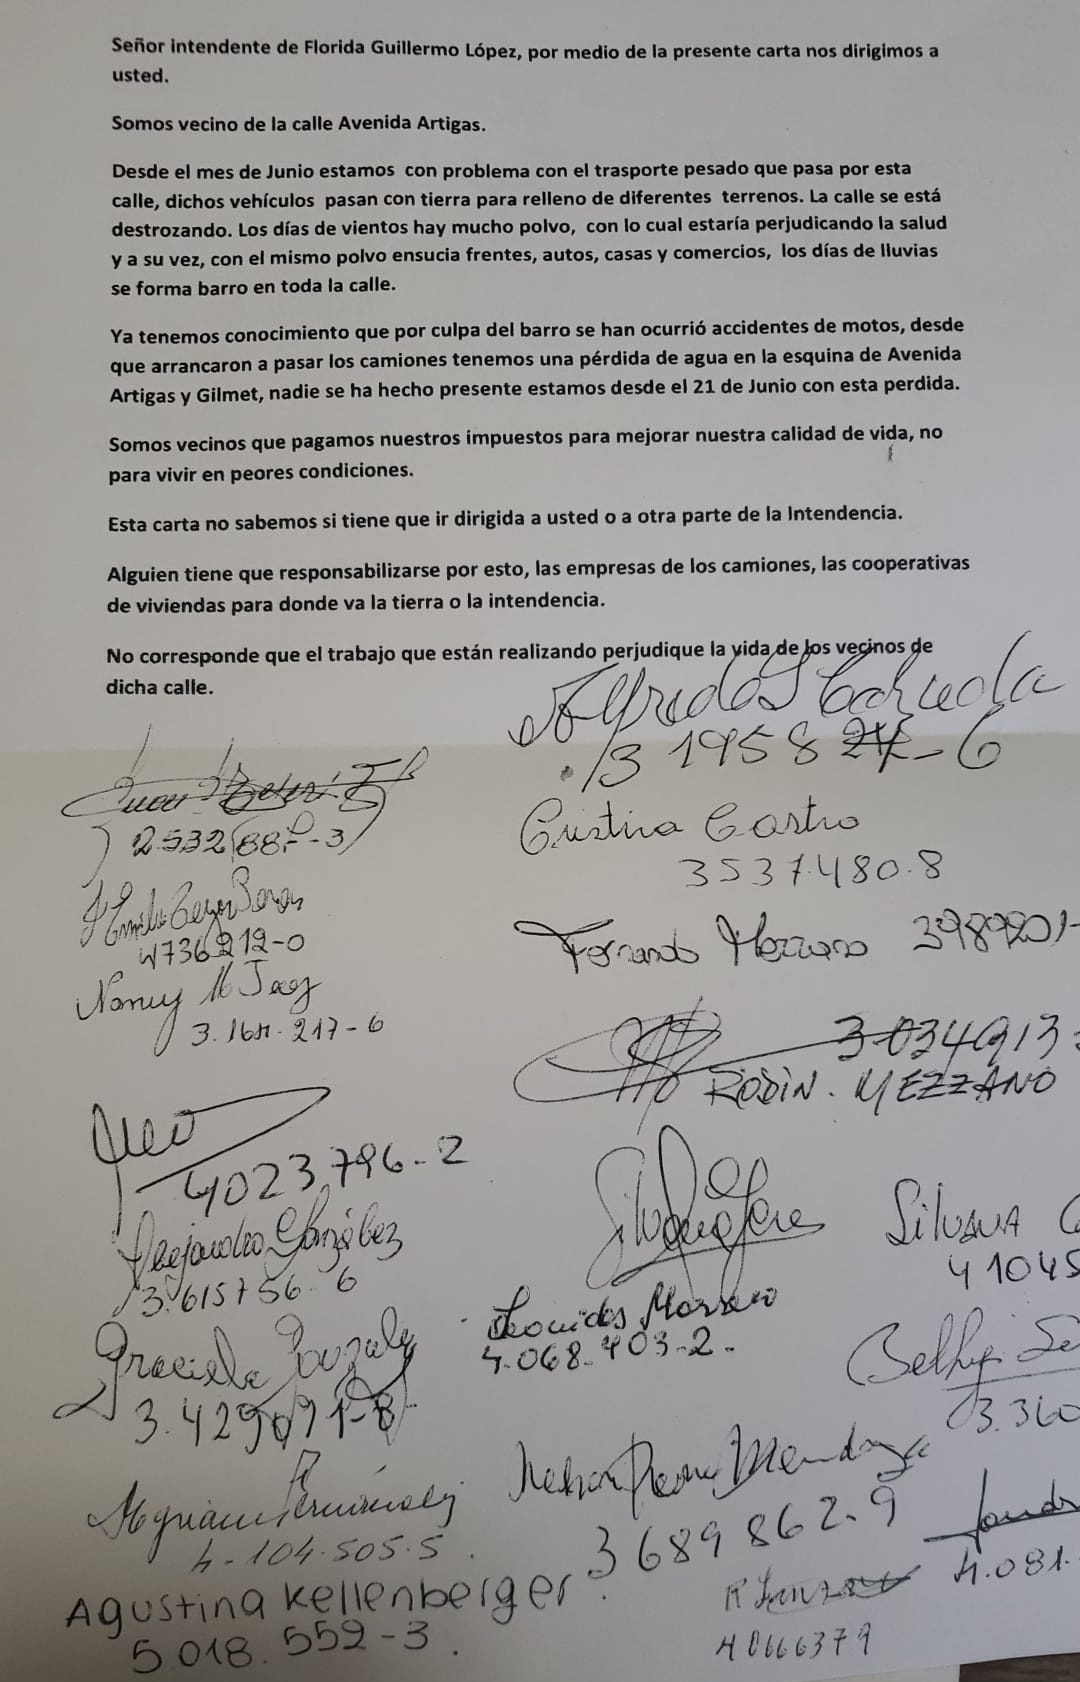 Señor intendente de Florida Guillermo López, por medio de la presente carta nos dirigimos a
usted.
Somos vecino de la calle Avenida Artigas.
Desde el mes de Junio estamos con problema con el trasporte pesado que pasa por esta
calle, dichos vehículos pasan con tierra para relleno de diferentes terrenos. La calle se está
destrozando. Los días de vientos hay mucho polvo, con lo cual estaría perjudicando la salud
y a su vez, con el mismo polvo ensucia frentes, autos, casas y comercios, los días de lluvias
se forma barro en toda la calle.
Ya tenemos conocimiento que por culpa del barro se han ocurrió accidentes de motos, desde
que arrancaron a pasar los camiones tenemos una pérdida de agua en la esquina de Avenida
Artigas y Gilmet, nadie se ha hecho presente estamos desde el 21 de Junio con esta perdida.
Somos vecinos que pagamos nuestros impuestos para mejorar nuestra calidad de vida, no
para vivir en peores condiciones.
Esta carta no sabemos si tiene que ir dirigida a usted o a otra parte de la Intendencia.
Alguien tiene que responsabilizarse por esto, las empresas de los camiones, las cooperativas
de viviendas para donde va la tierra o la intendencia.
No corresponde que el trabajo que están realizando perjudique la vida de los vecinos de
dicha calle.
Alfredo
Cristina Castro
3537480.8
Fernando
Nancy M
3034913
RODIN. MEZZANO
4023.796-2
Silvana
4.068.403-2.
Graciela
3689862.9
4-104.505.5
Agustina Kellenberger
5.018.559-3.